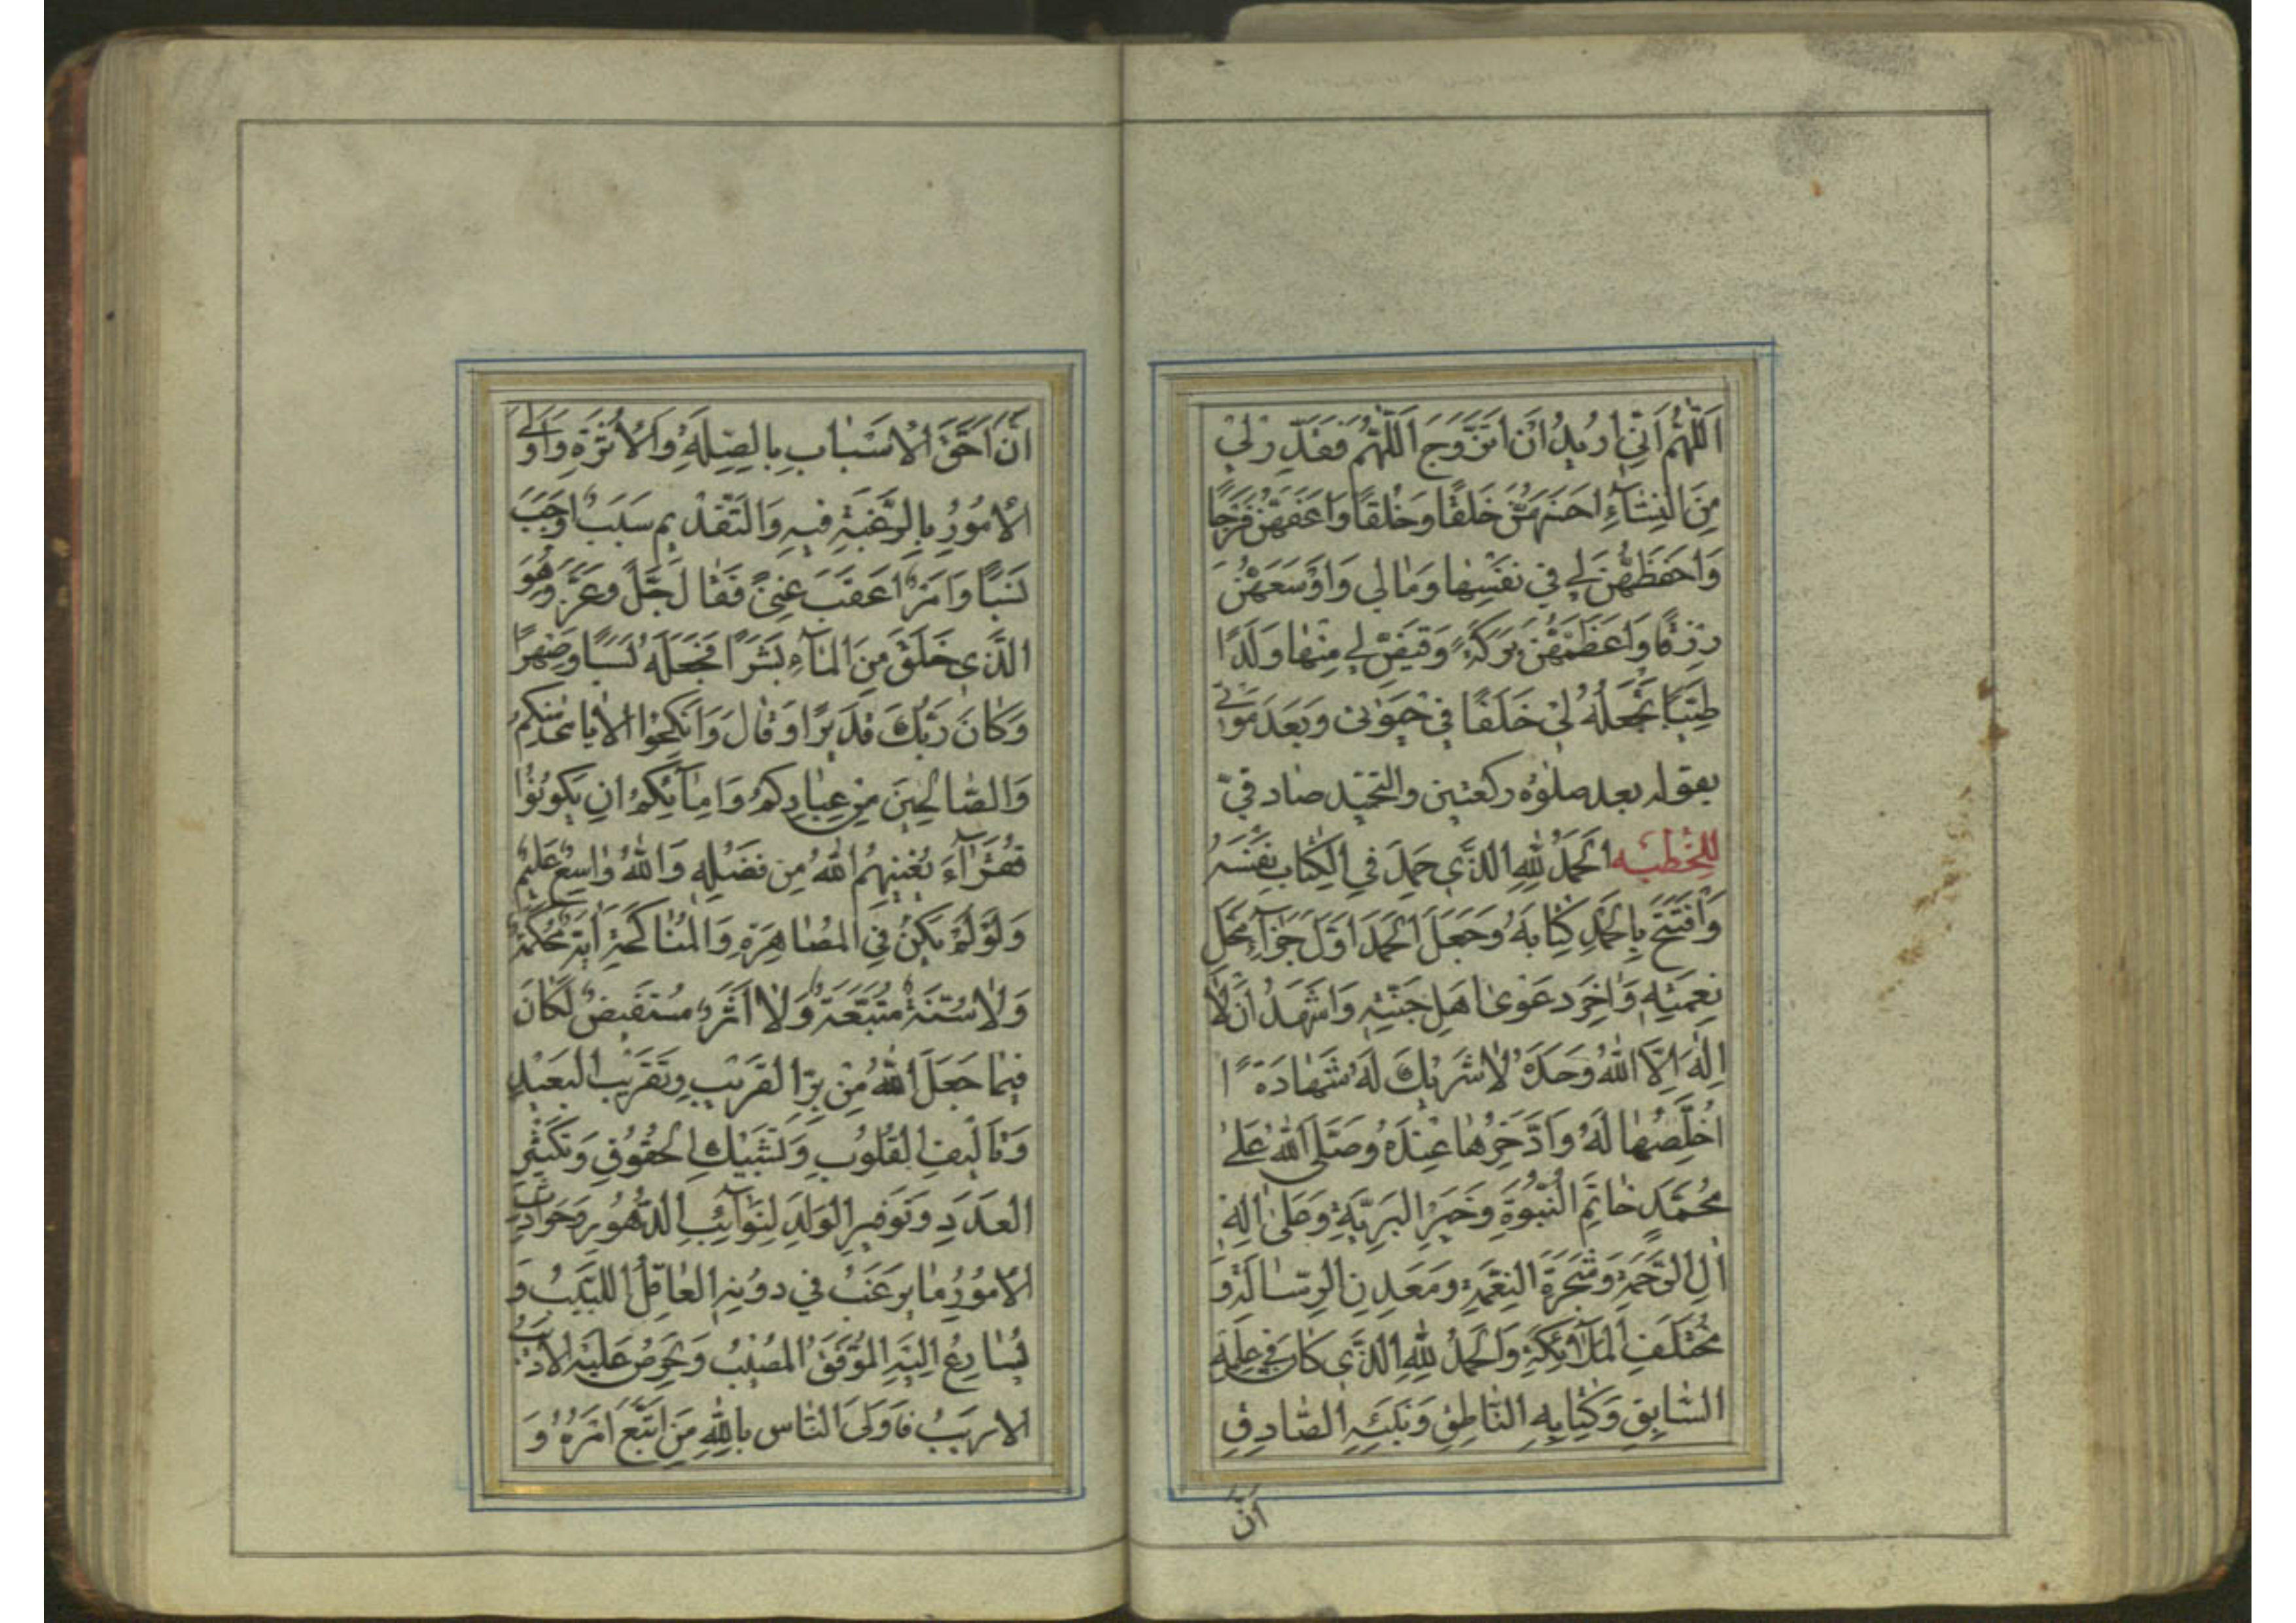 اَللّٰهُمَّ اِنّي اُريدُ اَنْ اَتَزَوَّجَ اَللّٰهُمَّ فَقَدِّرْ لي
مِنَ النِّسٰآءِ اَحْسَنَهُنَّ خَلْقًا وَخُلْقًا وَاَعَفَّهُنَّ فَرْجًا
وَاَحْفَظَهُنَّ لي في نَفْسِهٰا وَمٰالي وَاَوْسَعَهُنَّ
رِزْقًا وَاَعْظَمَهُنَّ بَرَكَةً وَقَيِّضْ لي مِنْهٰا وَلَدًا
طَيِّبًا تَجْعَلُهُ لي خَلَفًا في حَيٰوتي وَبَعْدَ مَوْتي
يقوله بعد صلوة ركعتين والتحميد صادقيّ
للخطبه اَلْحَمْدُ لِلّٰهِ الَّذي حَمِدَ فِي الْكِتٰابِ نَفْسَهُ
وَافْتَتَحَ بِالْحَمْدِ كِتٰابَهُ وَجَعَلَ الْحَمْدَ اَوَّلَ جَزٰآءِ مَحَلِّ
نِعْمَتِهِ وَاٰخِرَ دَعْوىٰ اَهْلِ جَنَّتِهِ وَاَشْهَدُ اَنْ لٰا
اِلٰهَ اِلَّا اللّٰهُ وَحْدَهُ لٰا شَرِيْكَ لَهُ شَهٰادَةً ا
اُخَلِّصُهٰا لَهُ وَاَدَّخِرُهٰا عِنْدَهُ وَصَلَّى اللّٰهُ عَلىٰ
مُحَمَّدٍ خٰاتَمِ النُّبُوَّةِ وَخَيْرِ الْبَرِيَّةِ وَصَلىٰ اٰلِهِ
اٰلِ الرَّحْمَةِ وَشَجَرَةِ النِّعْمَةِ وَمَعْدِنِ الرِّسٰالَةِ وَ
مُخْتَلَفِ الْمَلٰآئِكَةِ وَالْحَمْدُ لِلّٰهِ الَّذي كٰانَ في عِلْمِهِ
السّٰابِقِ وَكِتٰابِهِ النّٰاطِقِ وَنَبِيِّهِ الصّٰادِقِ
اَنَّ
اَنَّ اَحَقَّ الْاَسْبٰابِ بِالصِّلَةِ وَالْاَثَرَةِ وَاَوْلَى
الْاُمُوْرِ بِالرَّغْبَةِ فيهِ وَالتَّقْدِيمِ سَبَبٌ اَوْجَبَ
نَسَبًا وَاَمْرٌ اَعْقَبَ غِنىً فَقٰالَ جَلَّ وَعَزَّ وَهُوَ
الَّذي خَلَقَ مِنَ الْمٰآءِ بَشَرًا فَجَعَلَهُ نَسَبًا وَصِهْرًا
وَكٰانَ رَبُّكَ قَديرًا وَقٰالَ وَاَنْكِحُوا الْاَيٰامىٰ مِنْكُمْ
وَالصّٰالِحِينَ مِنْ عِبٰادِكُمْ وَاِمٰآئِكُمْ اِنْ يَكُونُوْا
فُقَرٰآءَ يُغْنِهِمُ اللّٰهُ مِنْ فَضْلِهِ وَاللّٰهُ وٰاسِعٌ عَلِيمٌ
وَلَوْ لَمْ يَكُنْ فِي الْمُصٰاهِرَةِ وَالْمُنٰاكَحَةِ اٰيَةٌ مُحْكَمَةٌ
وَلٰا سُنَّةٌ مُتَّبَعَةٌ وَلٰا اَثَرٌ مُسْتَفيضٌ لَكٰانَ
فيمٰا جَعَلَ اللّٰهُ مِنْ بِرِّ الْقَرِيْبِ وَتَقْرِيْبِ الْبَعيدِ
وَتَأْليفِ الْقُلُوْبِ وَتَشْبيكِ الْحُقُوْقِ وَتَكْثِيرِ
الْعَدَدِ وَتَوْفيرِ الْوَلَدِ لِنَوٰآئِبِ الدُّهُوْرِ وَحَوٰادِثِ
الْاُمُوْرِ مٰا يَرْغَبُ في دُوْنِهِ الْعٰاقِلُ اللَّبِيْبُ وَ
يُسٰارِعُ اِلَيْهِ الْمُوَفَّقُ الْمُصِيْبُ وَيَحْرِصُ عَلَيْهِ الْاَديبُ
الْاَريبُ فَاَوْلَى النّٰاسِ بِاللّٰهِ مَنِ اتَّبَعَ اَمْرَهُ وَ